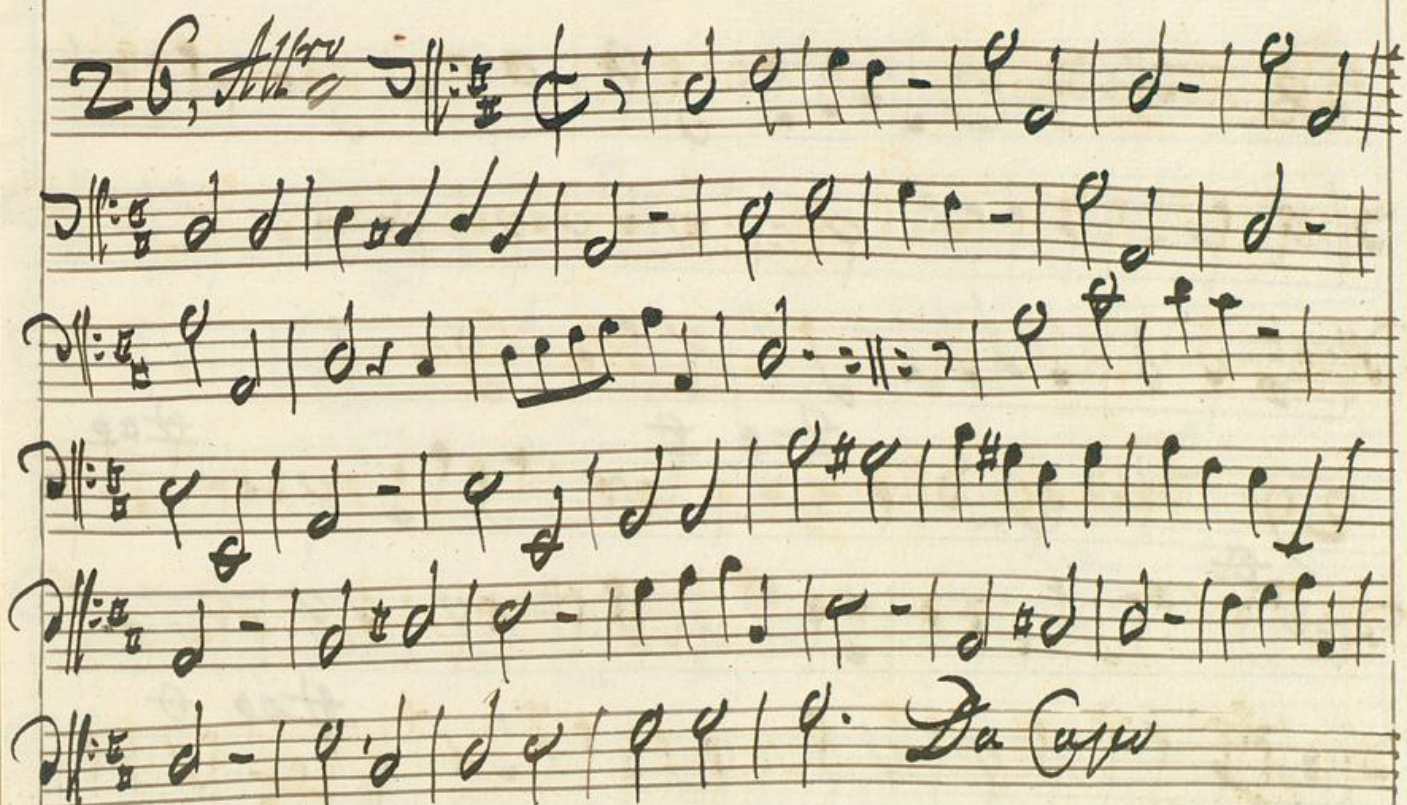 26, Allro
Da Capo